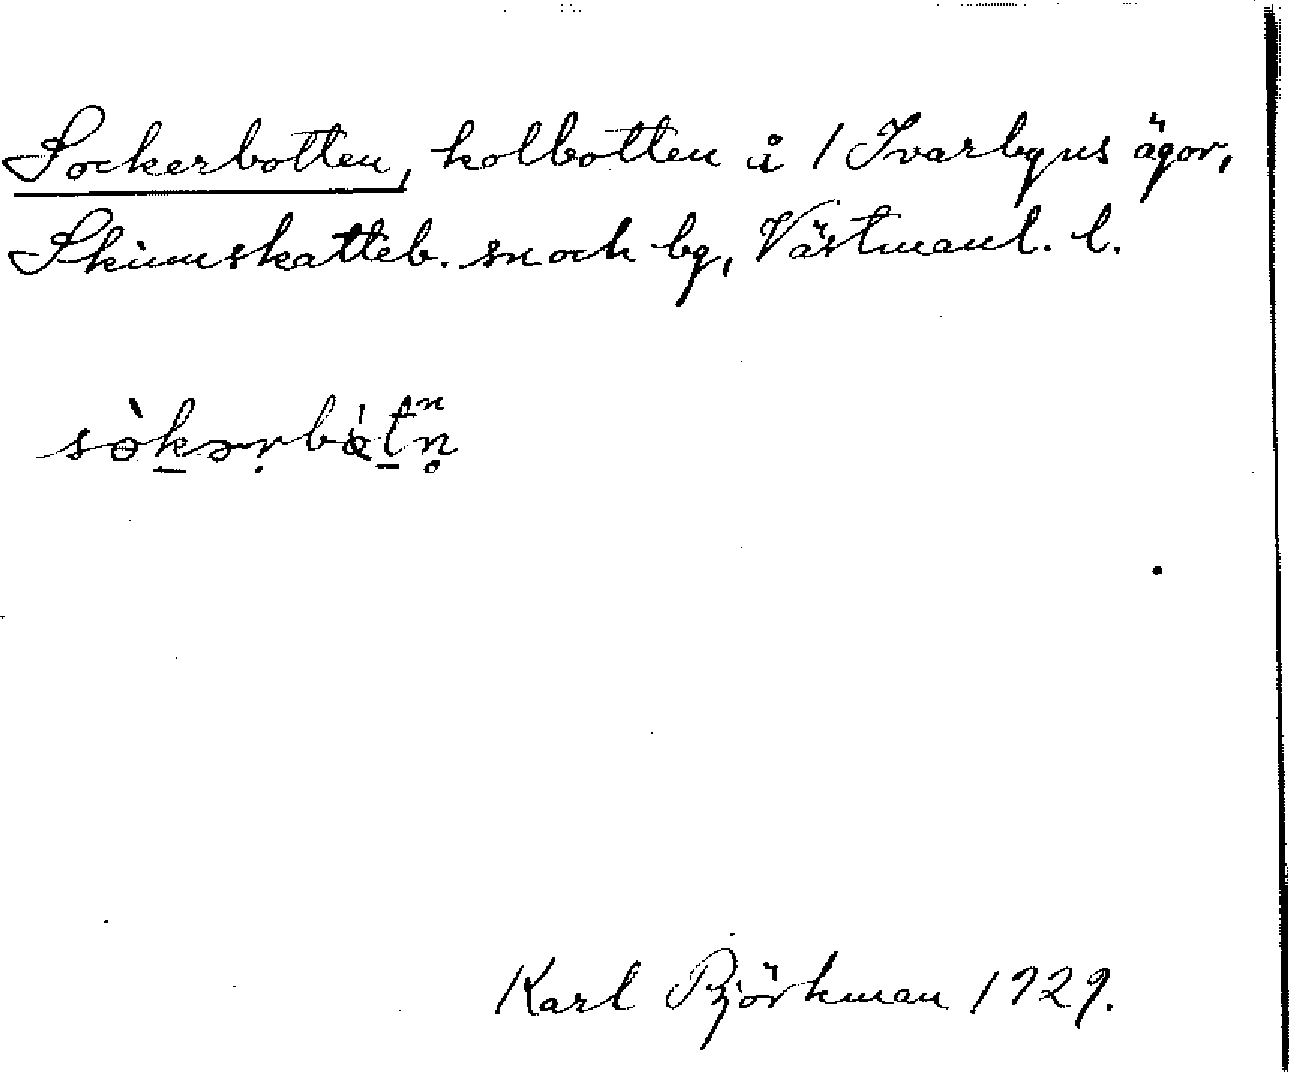 Sockerbotten, kolbotten å / Ivarbyns ägor,
Skinnskatteb. sn och bg, Västmanl. l.
Karl Björkman 1929.